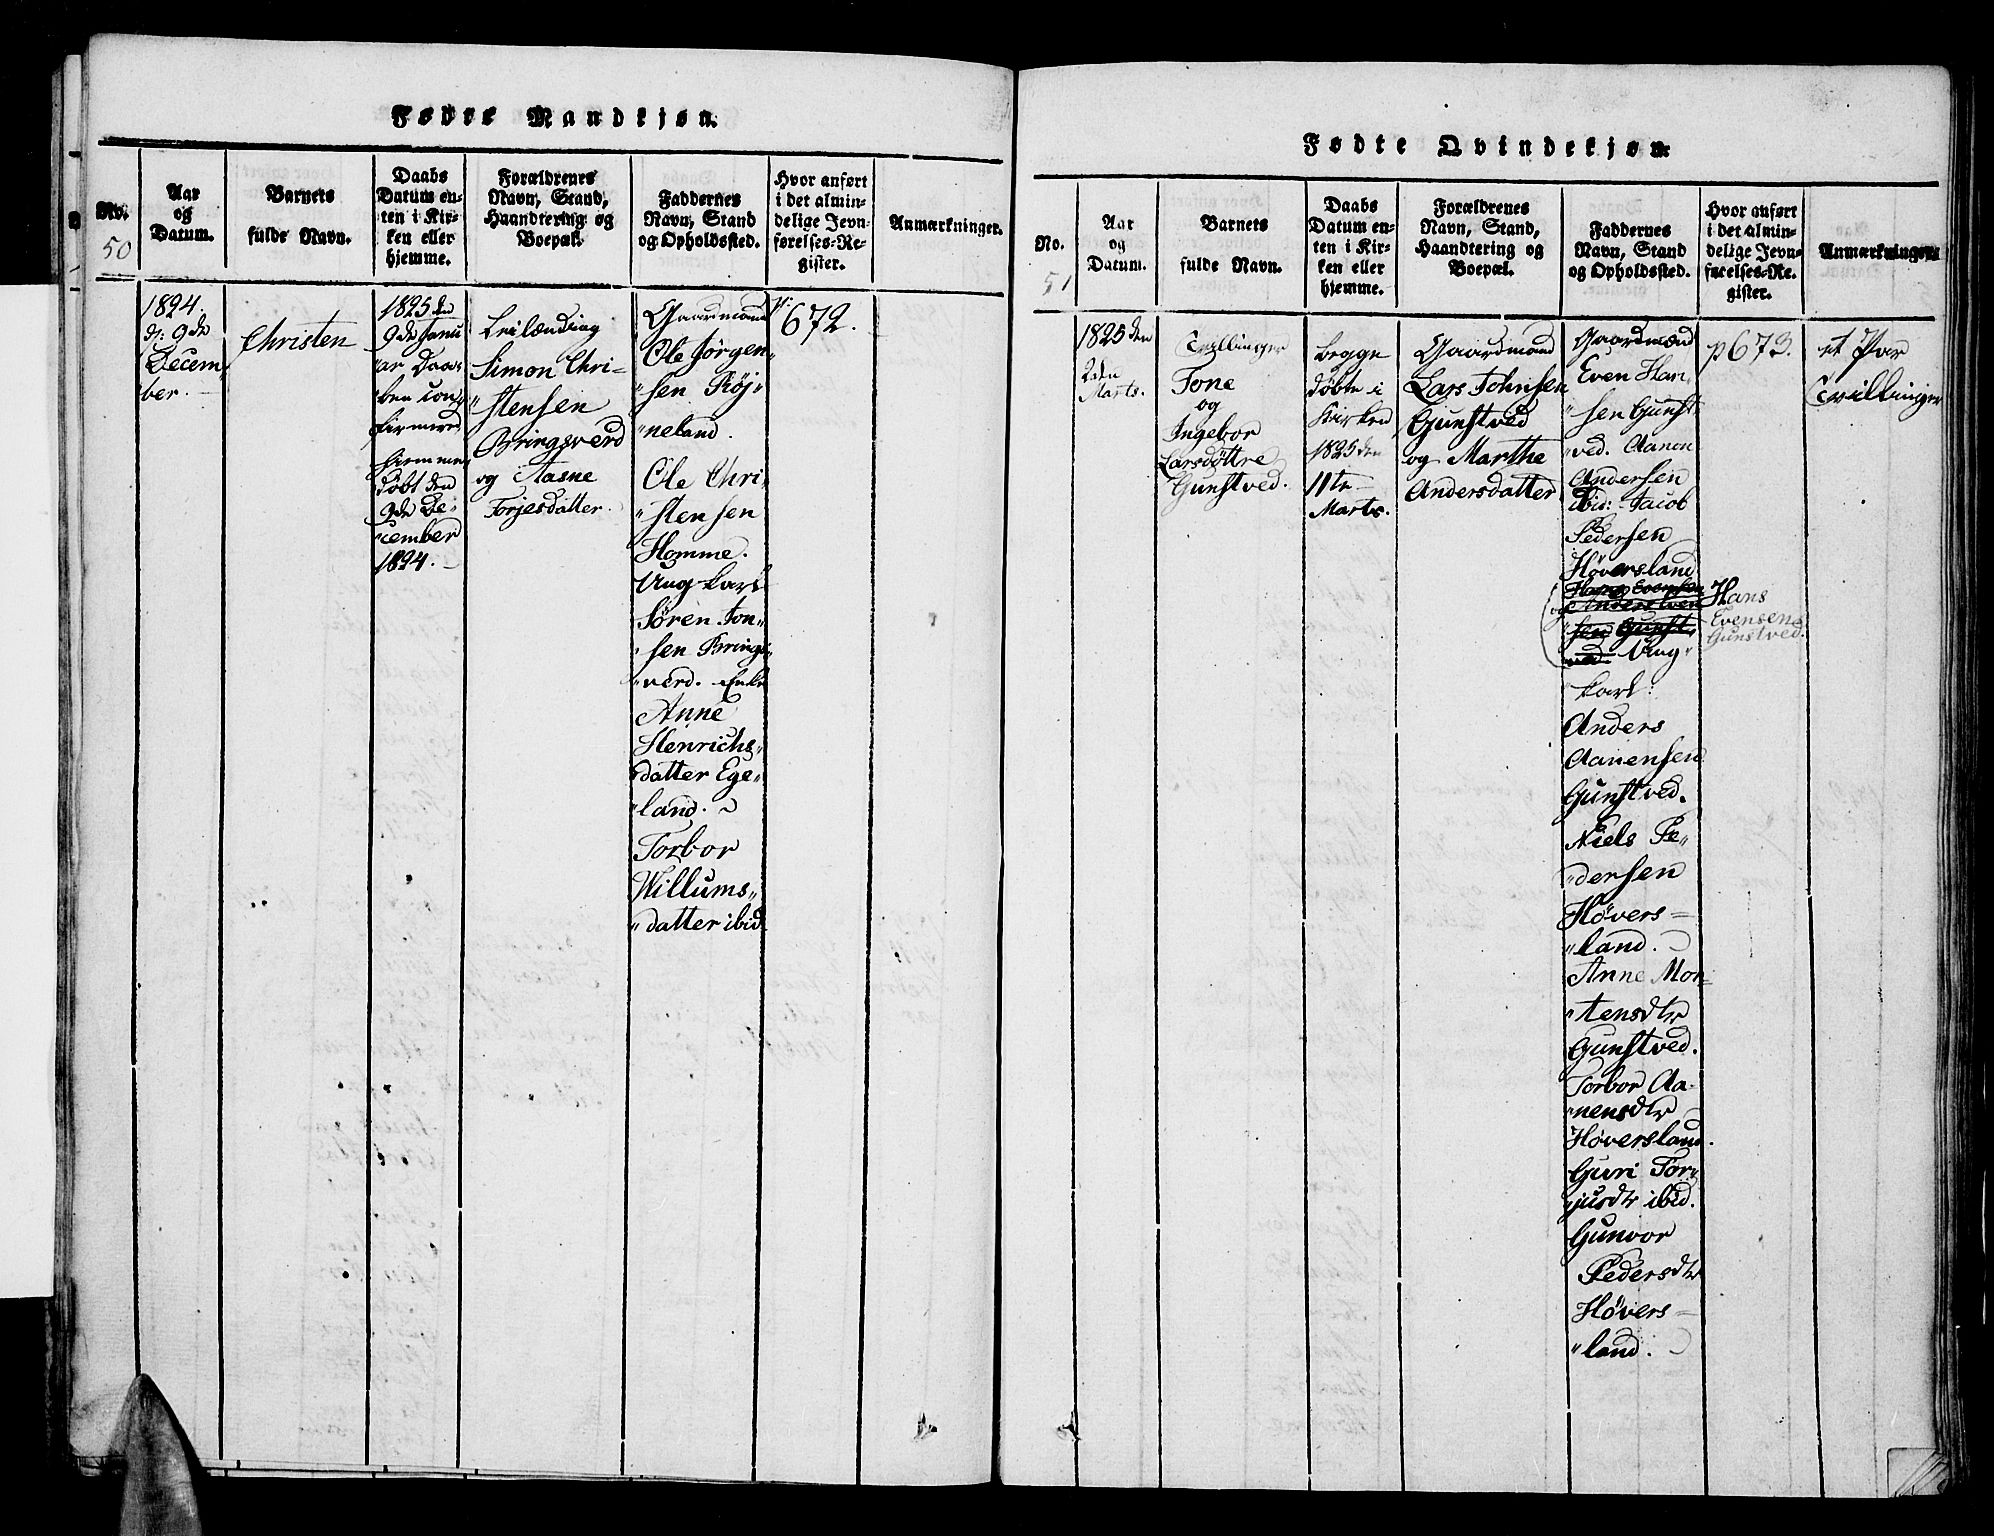 Fødte Mandkjøn.
No.
50
Aar
og
Datum.
Barnets
fulde Navn.
Daabs
Datum en-
ten i Kir-
ken eller
hjemme.
Forældrenes
Navn, Stand,
Haandtering og
Boepæl.
Faddernes
Navn, Stand
og Opholdssted.
Hvor anført
i det almin-
delige Jevn-
førelses-Re-
gister.
Anmærkninger.
1824.
d: 9de
Decem-
ber.
Christen
1825 den
9de Janu
ar Daa-
ben con-
firmered
hiemme
døbt den
9de De-
cember
1824.
Leilænding
Simon Chri-
stensen
Bringsverd
og Aasne
Torjesdatter.
Gaardmænd
Ole Jörgen-
sen Röj-
neland.
Ole Chri-
stensen
Homme.
Ung karl
Sören Jon-
sen Brings-
verd. Enke
Anne
Henrichs-
datter Ege-
land.
Torbor
Willums-
datter ibid.
p: 672.
Fødte Qvindekjøn.
No.
51
Aar
og
Datum.
Barnets
fulde Navn.
Daabs
Datum en-
ten i Kir-
ken eller
hjemme.
Forældrenes
Navn, Stand,
Haandtering og
Boepæl.
Faddernes
Navn, Stand
og Opholdssted.
Hvor anført
i det almin-
delige Jevn-
førelses-Re-
gister.
Anmærkninger.
1825 den
2den
Marts.
Tvillinger
Tone
og
Ingebor
Larsdöttre
Gunstved.
begge
døbte i
Kirken
1825 den
11te
Marts.
Gaardmand
Lars Johnsen
Gunstved
og Marthe
Andersdatter
Gaardmænd
Even Han-
sen Gunst-
ved. Aanen
Andersen
ibid: Jacob
Pedersen
Höversland
Hans Evensen
og Anders Even
sen Gunst-
ved. Ung-
karl:
Anders
Aanensen
Gunstved.
Niels Pe-
dersen
Hövers-
land.
Anne Mor-
tensdtr
Gunstved.
Torbor Aa-
nensdtr
Höversland.
Guri Tor-
jusdtr ibid.
Gunvor
Pedersdtr
Hövers-
land.
p673.
Hans
Evensen
Gunstved.
et Par
Tvillinger